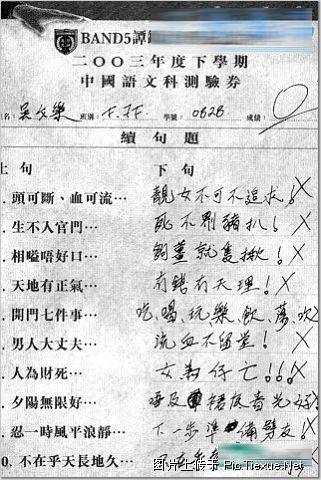 BAND5譚
二○○三年度下學期
中國語文科測驗卷
名: 吳文樂 班別: F.3F 學號: 0828 成績: 0
續句題
上句 下句
. 頭可斷、血可流… 靚女不可不追求! X
. 生不入官門… 死不劏豬扒! X
. 相嗌唔好口… 就隻揪! X
. 天地有正氣… 有錢有天理! X
. 開門七件事… 吃、喝、玩、樂、飲、蕩、吹 X
. 男人大丈夫… 流血不留堂! X
. 人為財死… 女為仔亡!!! X
. 夕陽無限好… X
. 忍一時風平浪靜… 下一步準備劈友! X
0. 不在乎天長地久… X
图片上传于 PicTiexue.Net